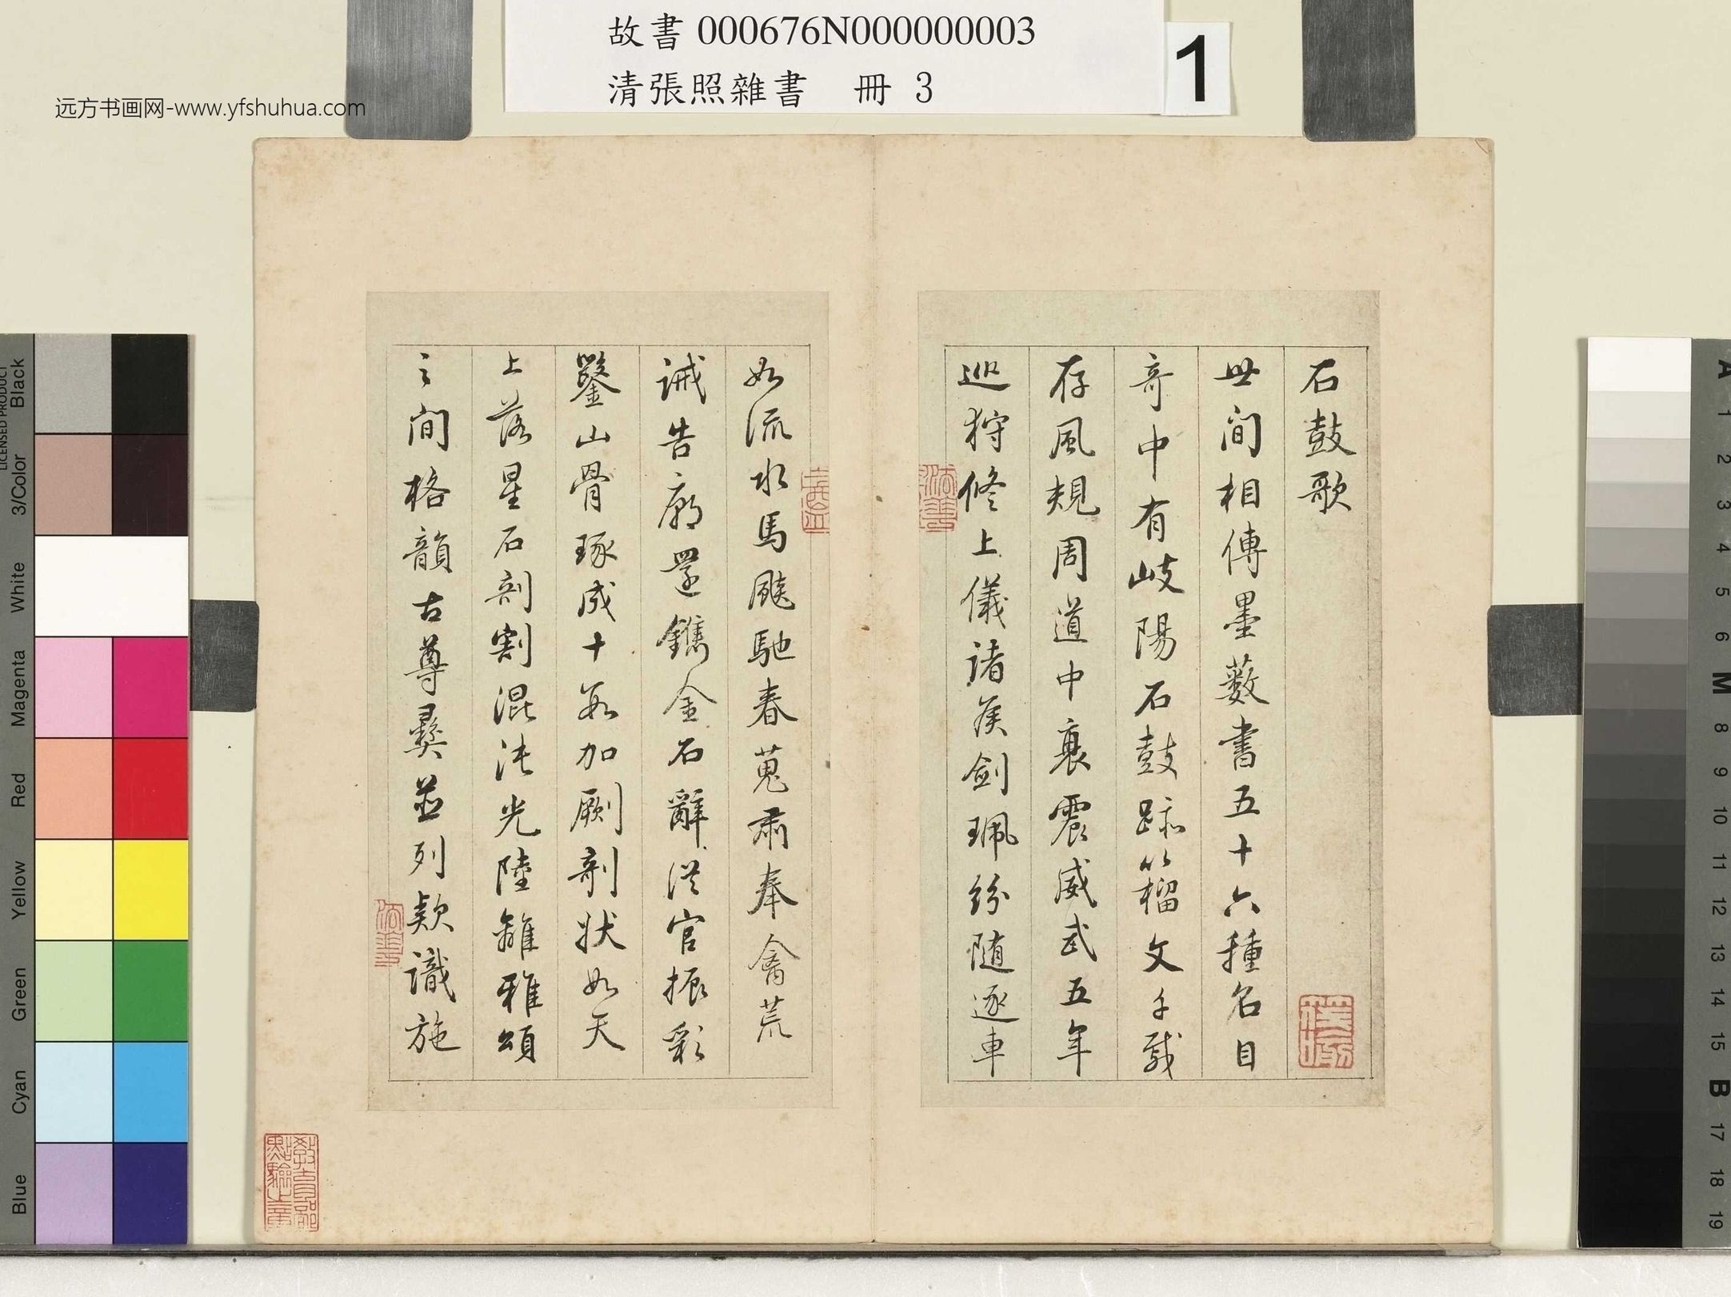 故書000676N000000003
清張照雜書 冊 3
1
远方书画网-www.yfshuhua.com
石鼓歌
世间相傳墨藪書五十六種名目
奇中有岐陽石鼓跡籀文千載
存風規周道中衰震威武五年
巡狩修上儀諸侯劍珮紛随逐車
如流水馬飈馳春蒐肅奉禽荒
誡告廟還鐫金石辭從官振彩
鑿山骨琢成十數加劂剞狀如天
上落星石剖割混沌光陸離雅頌
之间格韻古尊彝並列款識施
教育部
點驗之章
LICENSED PRODUCT
Black
3/Color
White
Magenta
Red
Yellow
Green
Cyan
Blue
A
1
2
3
4
5
6
M
8
9
10
11
12
13
14
15
B
17
18
19